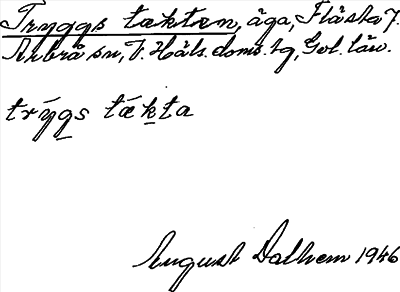 Tryggs täkten, äga, Flästa 7.
Arbrå sn, V. Häls. doms. tg, Gvl. län.
trýgs tǽkta
August Dalhem 1946